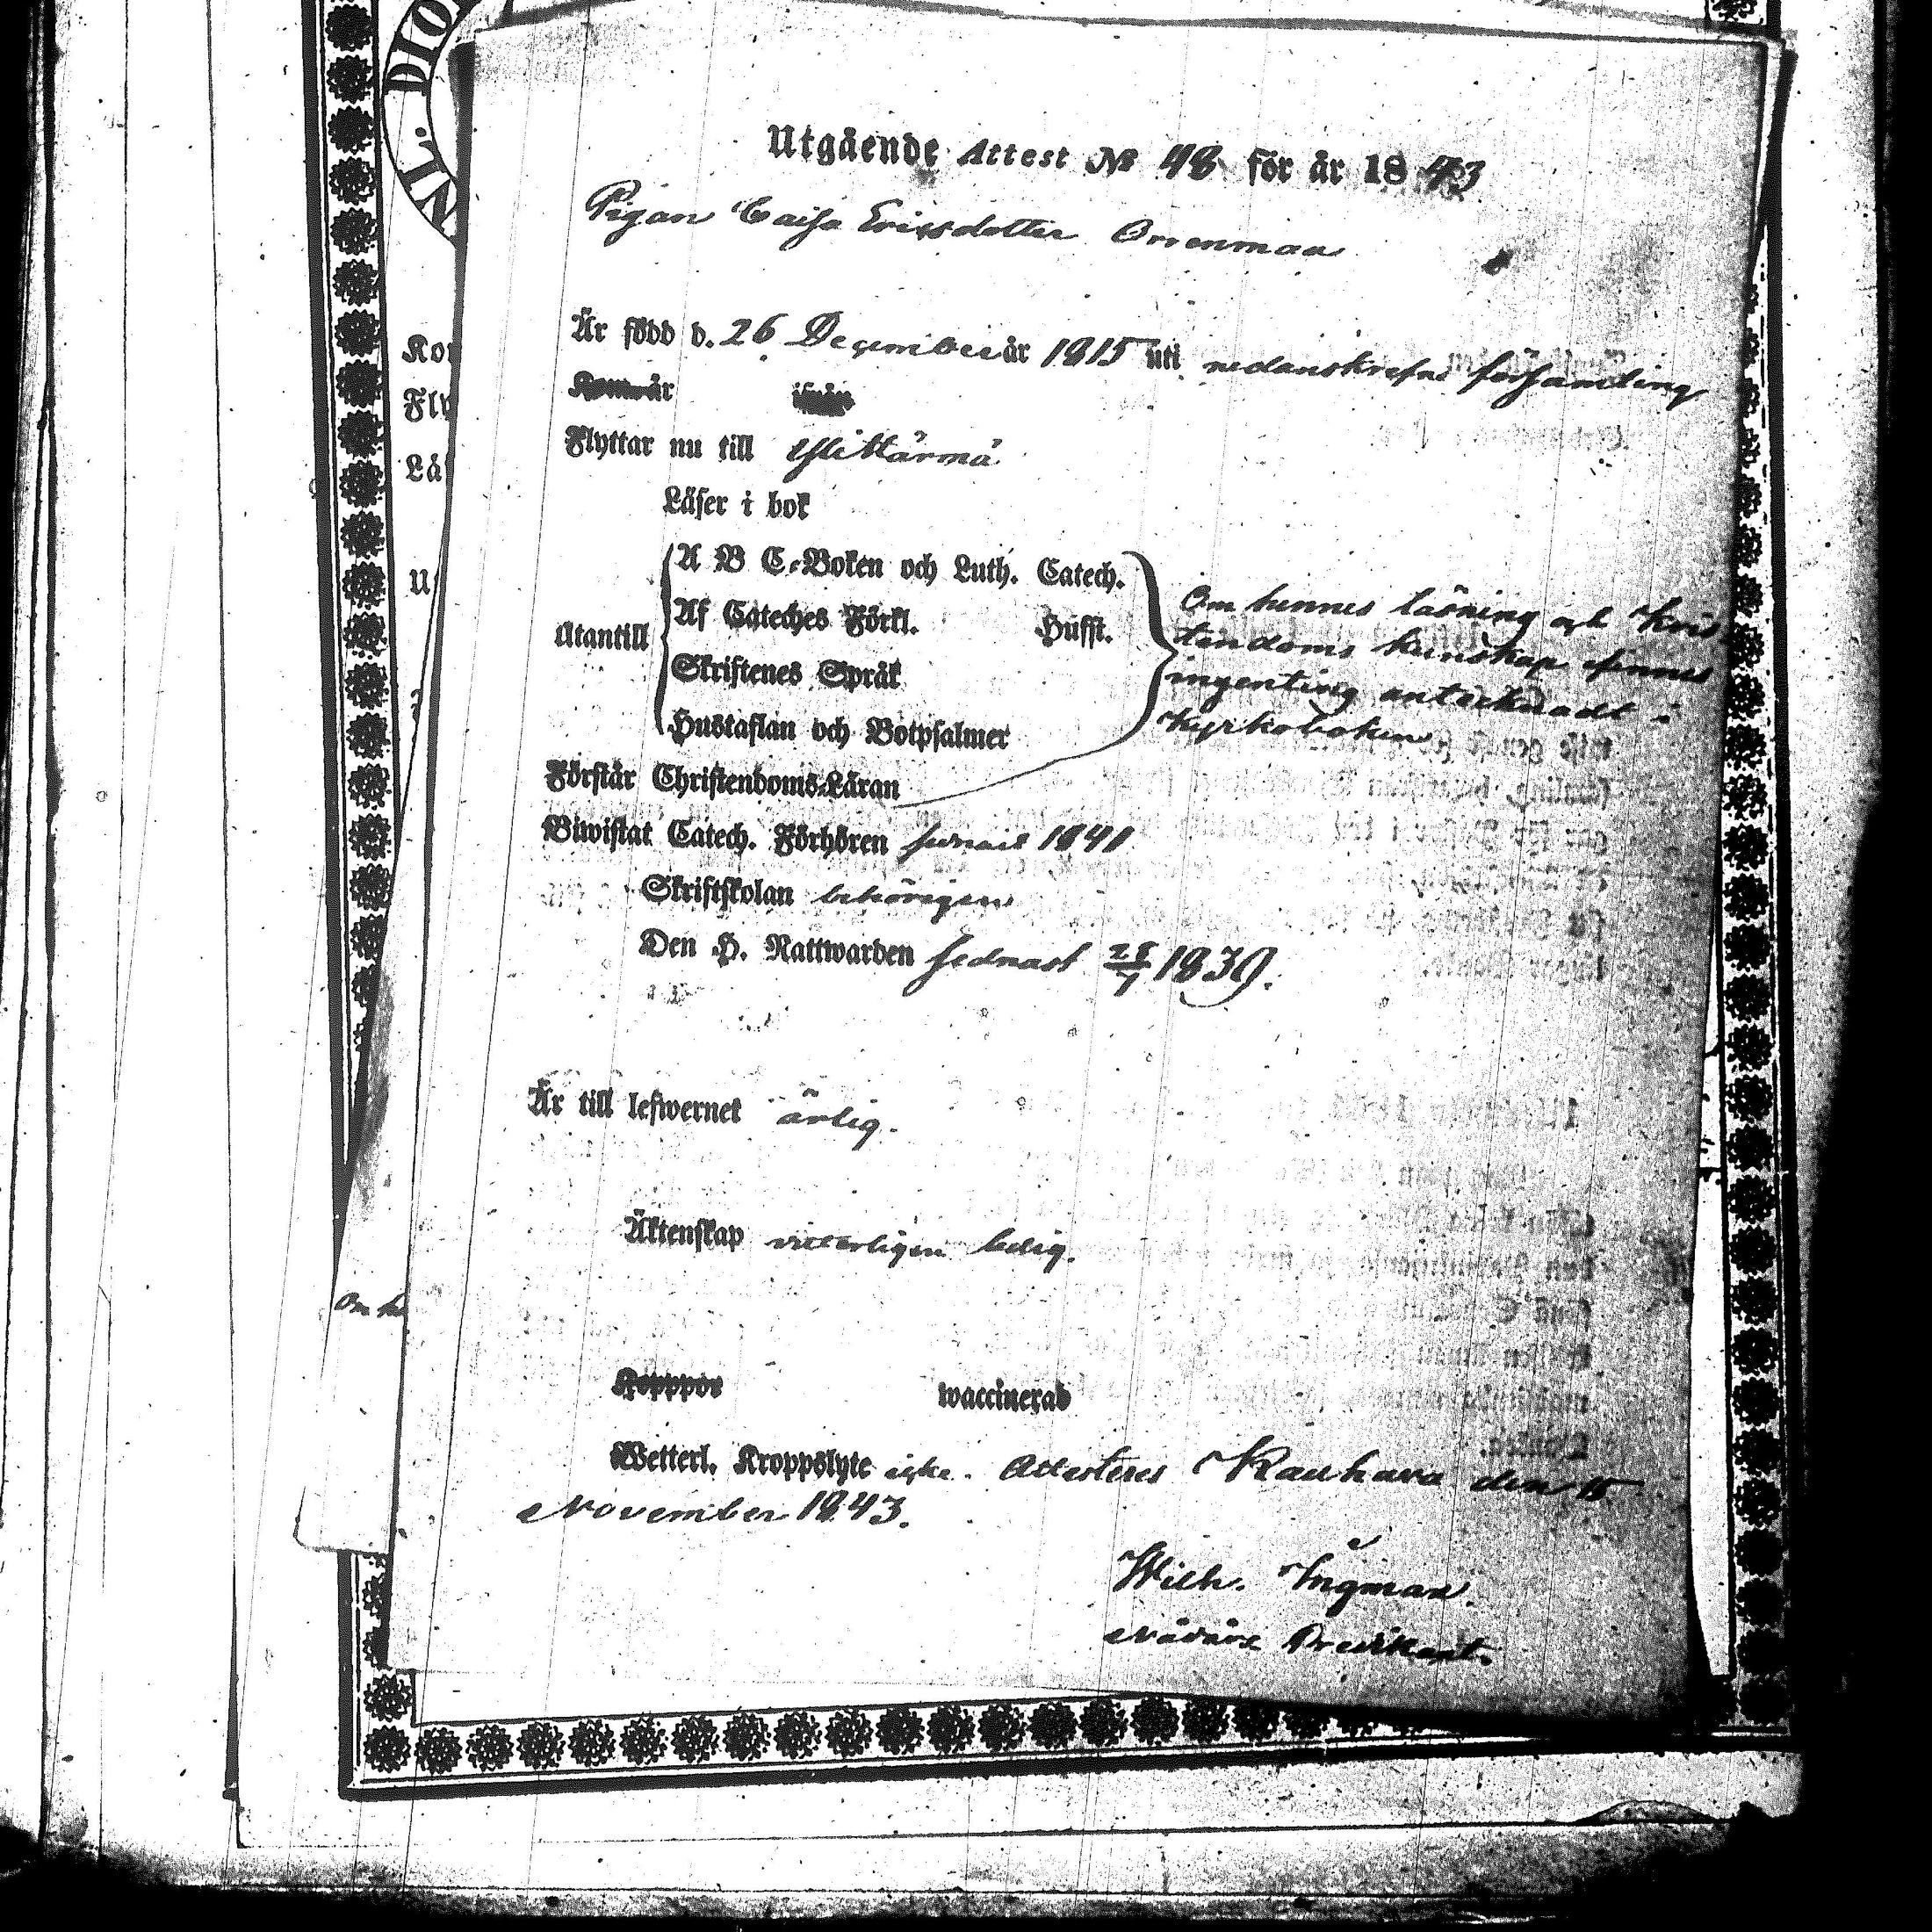 NL. DIO
Utgående Attest № 48 för år 1843
Pigan Caisa Ericsdotter Orrenmaa
Är född d. 26 December år 1815 uti nedanskrefne församling
Kom år ifrån
Flyttar nu till Ylihärmä
Läser i bok
A B C-Boken och Luth. Catech.
Af Cateches Förkl. Hufst.
Utantill
Skriftenes Språk
Hustaflan och Botpsalmer
Om hennes läsning och Kris
tendoms kunskap finnes
ingenting antecknadt i
Kyrkoboken
Förstår Christendoms-Läran
Biwistat Catech. Förhören sednast 1841
Skriftskolan behörigen
Den H. Nattwarden sednast 28/7 1839.
Är till lefwernet ärlig.
Äktenskap vitterligen ledig.
Kopppor waccinerad
Wetterl. Kroppslyte icke. Attesteres Kauhava den 15
November 1843.
Wilh. Ingman.
Nådårs Predikant.
Kom
Fly
Lä
U
Om he